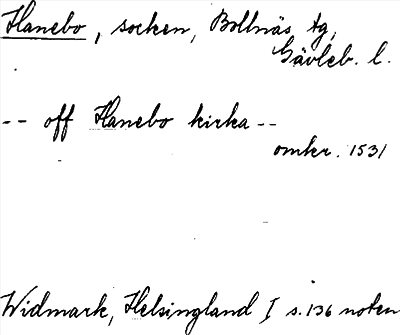 Hanebo, socken, Bollnäs tg,
Gävleb. l.
-- off Hanebo kirka --
omkr. 1531
Widmark, Helsingland I s. 136 noten